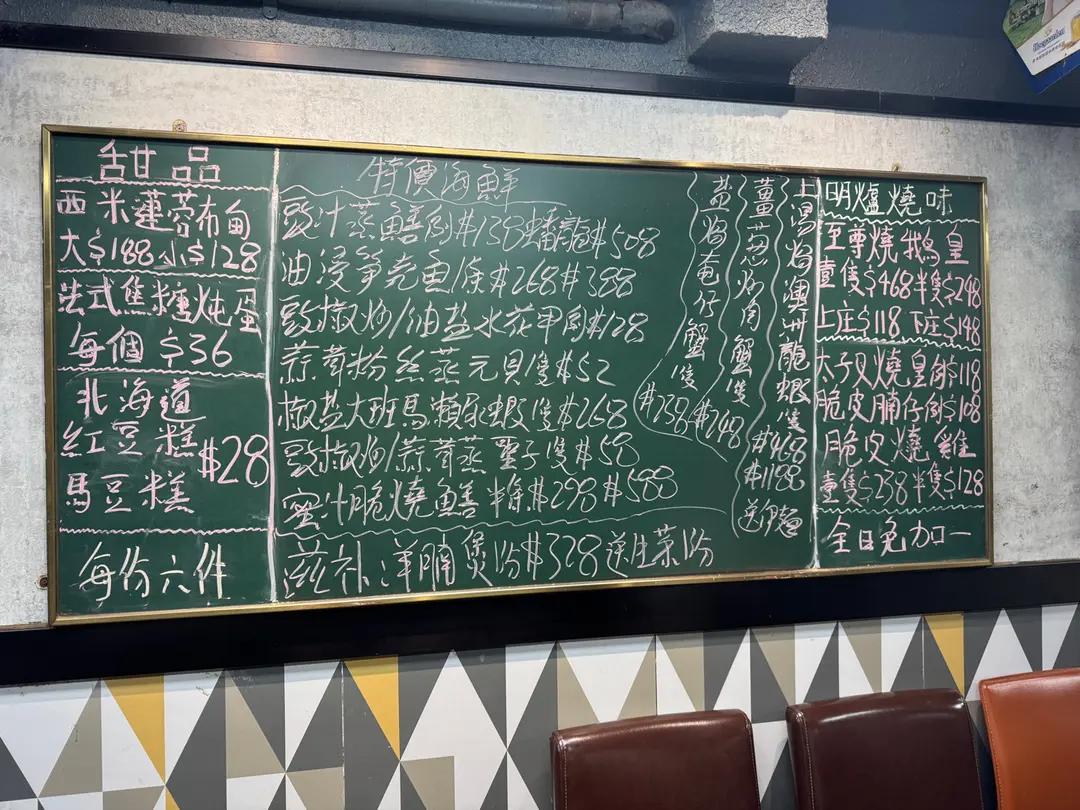 甜品
西米蓮蓉布甸
大$188小$128
法式焦糖炖蛋
每個$36
北海道
紅豆糕
馬豆糕
$28
每份六件
特價海鮮
豉汁蒸鱔例$138 $508
油浸笋壳魚/條$268$388
豉椒炒/油盐水花甲例$128
蒜茸粉丝蒸元貝/隻$52
椒盐大班馬瀨尿蝦/隻$268
豉椒炒/蒜茸蒸聖子/隻$58
蜜汁脆燒鱔半條$298$588
滋补羊腩煲/份$328送生菜/份
上湯焗澳洲龍蝦/隻
$468
$1188
送伊麵
薑葱炒肉蟹/隻
$248
盐焗奄仔蟹/隻
$238
明爐燒味
至尊燒鵝皇
壹隻$468半隻$248
上庄$118下庄$148
太子叉燒皇例$118
脆皮腩仔例$108
脆皮燒雞
壹隻$238半隻$128
全日免加一